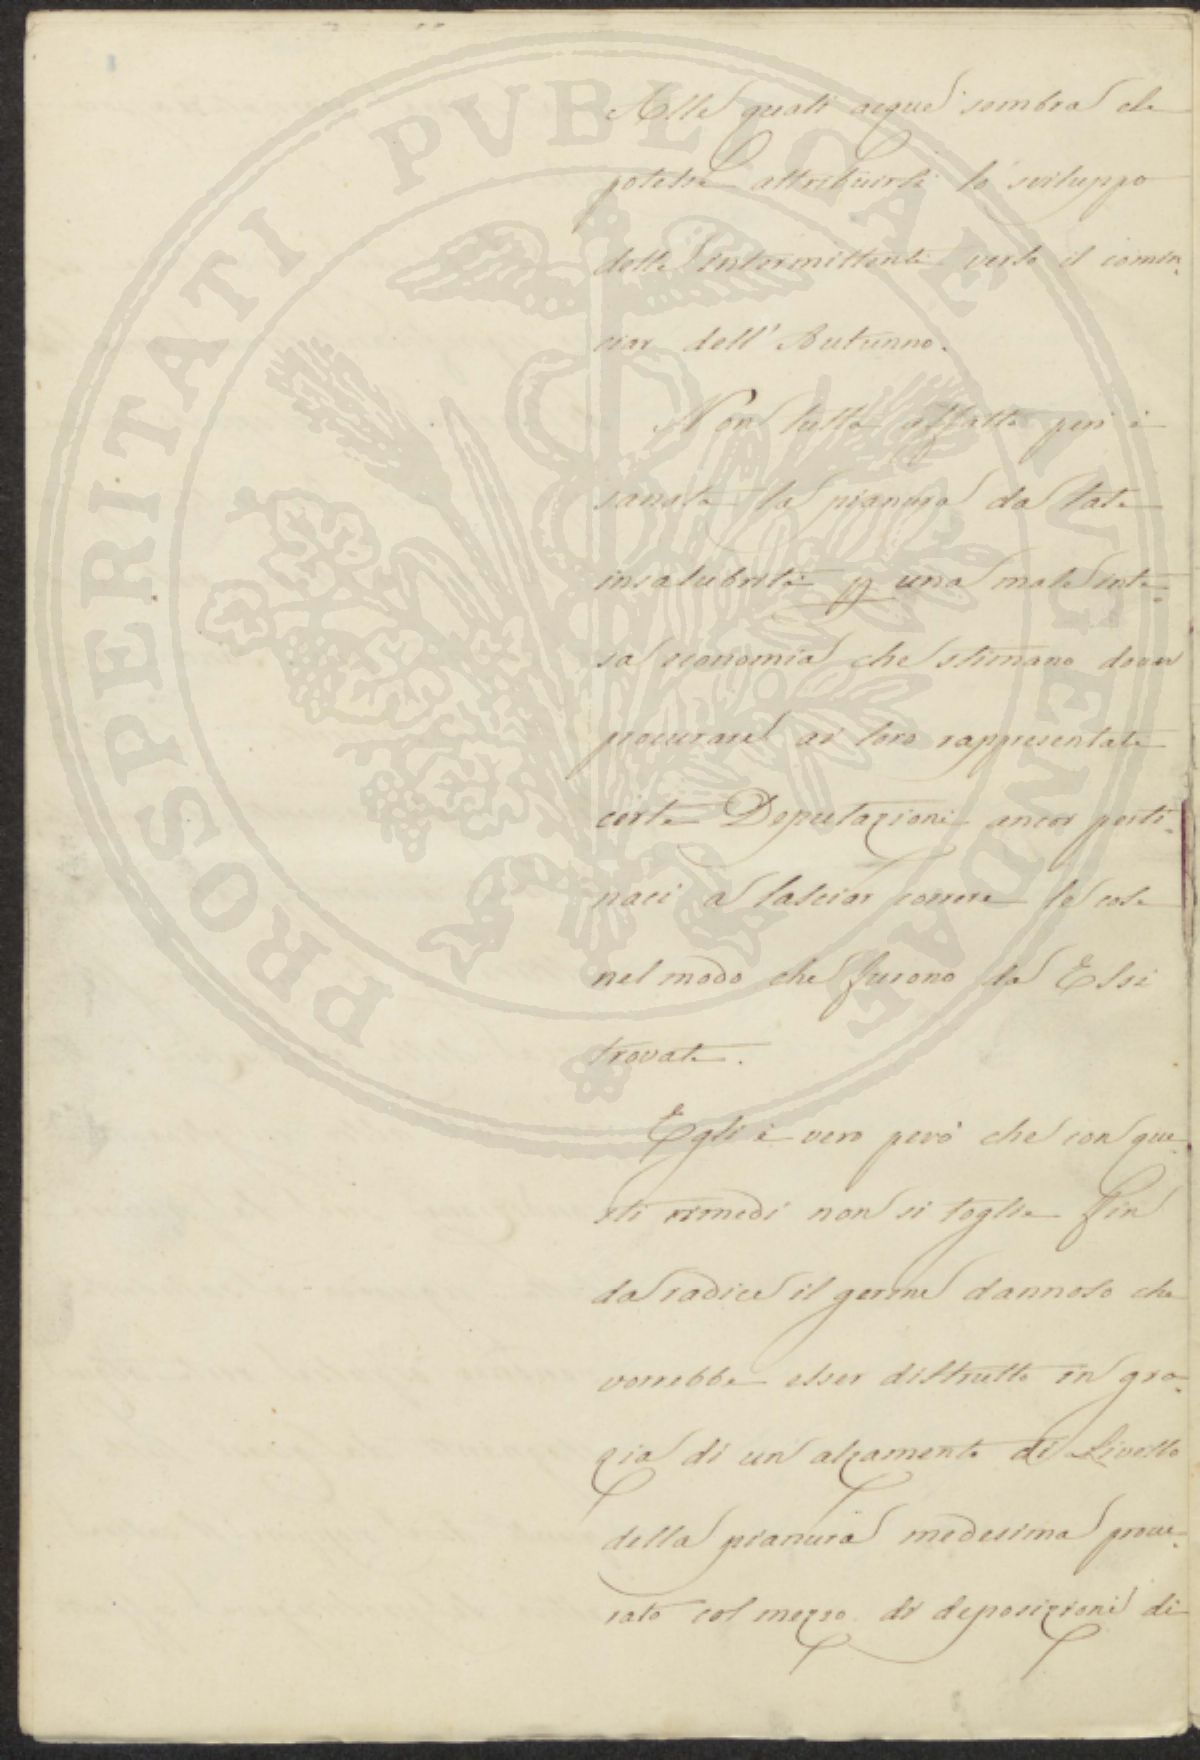 Alle quali acque sembra che
potesse attribuirsi lo sviluppo
delle intermittenti verso il comin-
ciar dell' Autunno.
Non tutta affatto però è
sanata la pianura da tale
insalubrità p una male inte-
sa economia che stimano dover
procurare ai loro rappresentati
certe Deputazioni ancor perti-
naci a lasciar correre le cose
nel modo che furono da Essi
trovate.
Egli è vero però che con que-
sti rimedi non si toglie fin
da radice il germe dannoso che
vorrebbe esser distrutto in gra-
zia di un alzamento di Livello
della pianura medesima procu-
rato col mezzo di deposizioni di
PROSPERITATI PVBLICAE AVGENDAE